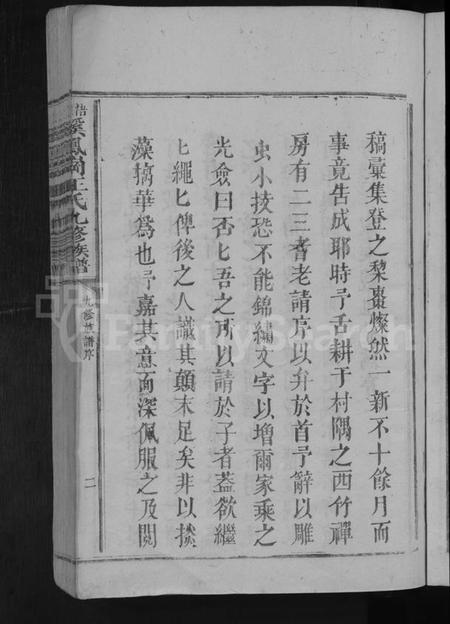 稿彙集登之黎棗燦然一新不十餘月而
事竟告成耶時予舌耕于村隅之西竹禪
房有二三耆老請序以弁於首予辭以雕
虫小技恐不能錦繡文字以增爾家乘之
光僉曰否匕吾之所以請於子者葢欲繼
匕繩匕俾後之人識其顛末足矣非以掞
藻摛華爲也予嘉其意而深佩服之及閱
梧溪鳳岡王氏九修族譜
九修族譜序
二
FamilySearch